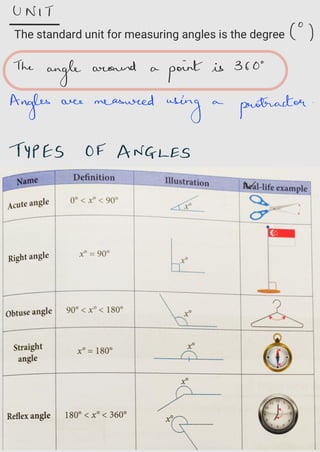 UNIT
The standard unit for measuring angles is the degree (°)
The angle around a point is 360°
Angles are measured using a protractor.
TYPES OF ANGLES
Name Definition Illustration Real-life example
Acute angle 0° < x° < 90° x°
Right angle x° = 90° x°
Obtuse angle 90° < x° < 180° x°
Straight angle x° = 180° x°
Reflex angle 180° < x° < 360° x° x°